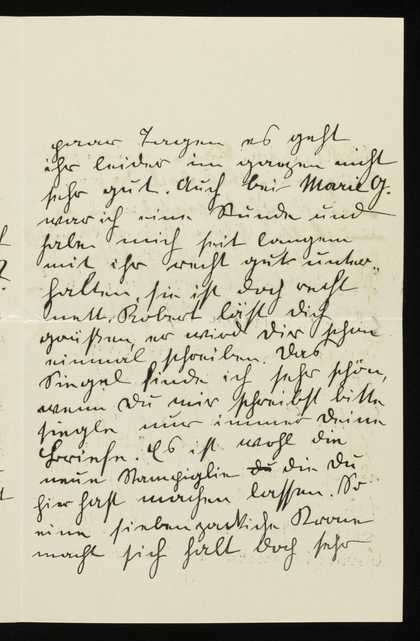 paar Tagen es geht
ihr leider im ganzen nicht
sehr gut. Auch bei Marie G.
war ich eine Stunde und
habe mich seit langem
mit ihr recht gut unter„
halten, sie ist doch recht
nett. Robert läßt dich
grüßen, er wird Dir schon
einmal schreiben. Das
Siegel finde ich sehr schön,
wenn Du mir schreibst bitte
siegle nur immer Deine
Briefe. Es ist wohl die
neue Stampiglie die Du
hier hast machen lassen. So
eine siebenzackiche Krone
macht sich halt doch sehr